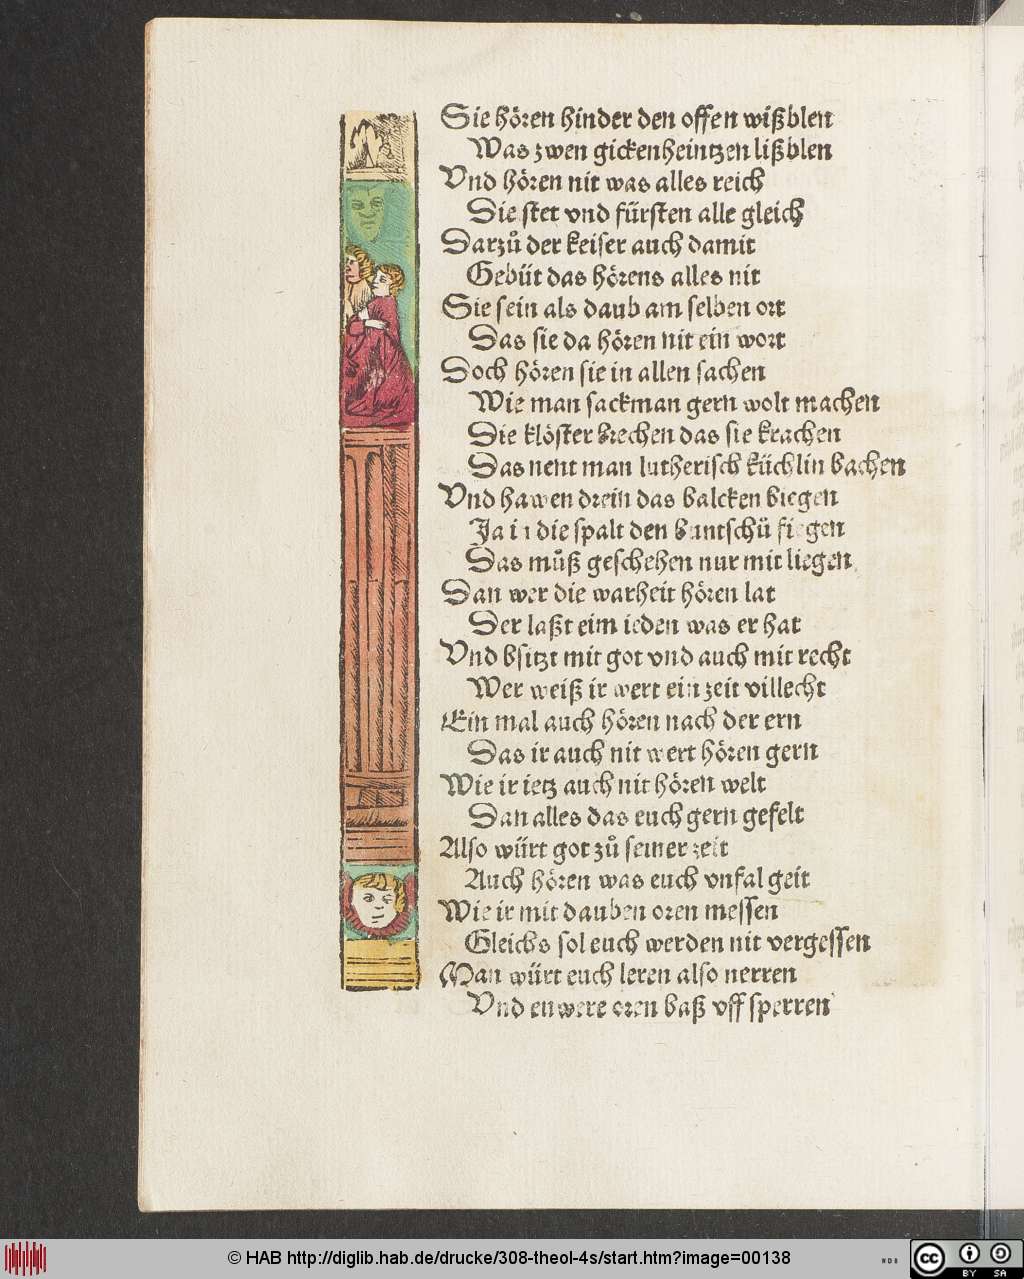 Sie hören hinder den offen wißblen
Was zwen gickenheintzen lißblen
Vnd hören nit was alles reich
Die stet vnd fürsten alle gleich
Darzů der keiser auch damit
Gebüt das hörens alles nit
Sie sein als daub am selben ort
Das sie da hören nit ein wort
Doch hören sie in allen sachen
Wie man sackman gern wolt machen
Die klöster brechen das sie krachen
Das nent man lutherisch küchlin bachen
Vnd hawen drein das balcken biegen
Ja in die spalt den buntschü fiegen
Das můß geschehen nur mit liegen
Dan wer die warheit hören lat
Der laßt eim ieden was er hat
Vnd bsitzt mit got vnd auch mit recht
Wer weiß ir wert ein zeit villecht
Ein mal auch hören nach der ern
Das ir auch nit wert hören gern
Wie ir ietz auch nit hören welt
Dan alles das euch gern gefelt
Also würt got zů seiner zeit
Auch hören was euch vnfal geit
Wie ir mit dauben oren messen
Gleichs sol euch werden nit vergessen
Man würt euch leren also nerren
Vnd euwere oren baß vff sperren
© HAB http://diglib.hab.de/drucke/308-theol-4s/start.htm?image=00138
WDB
cc
BY SA